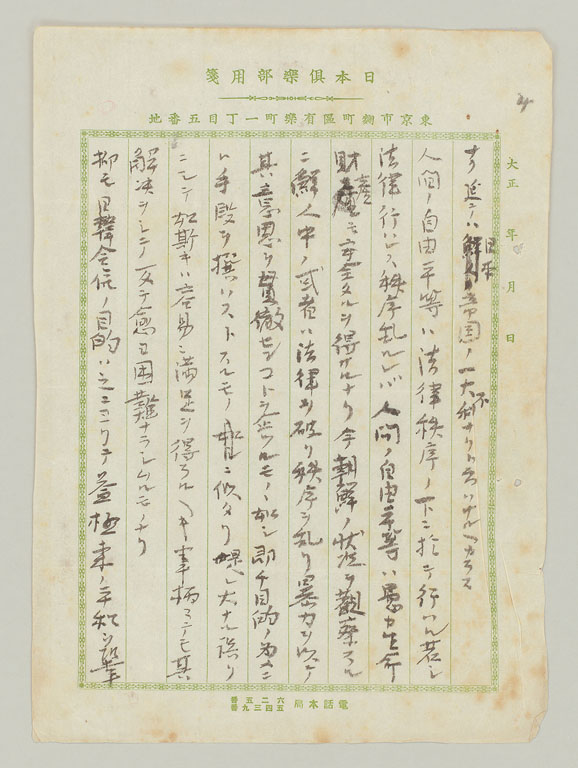 日本倶樂部用箋
東京市麹町區有樂町一丁目五番地
大正 年 月 日
延テハ日本帝国ノ一大不利ナリト云ハザルヘカラス
人間ノ自由平等ハ法律秩序ノ下ニ於テ行ハル若シ
法律行ハレス秩序乱ルレハ人間ノ自由平等ハ愚カ生命
財産モ安全タルヲ得サルナリ今朝鮮ノ状況ヲ觀察スル
ニ鮮人中ノ或者ハ法律ヲ破リ秩序ヲ乱リ暴力ヲ以テ
其意思ヲ貫徹センコトヲ企ツルモノヽ如シ即チ目的ノ為メニ
ハ手段ヲ撰ハストスルモノニ似タリ是レ大ナル誤リ
ニシテ如斯キハ容易ニ満足ヲ得ラルヘキ事柄ニテモ其
解决ヲシテ反テ愈困難ナラシムルモノナリ
抑モ日韓合併ノ目的ハ之ニヨリテ益極東ノ平和ヲ鞏
電話本局 六二五番
五四三九番